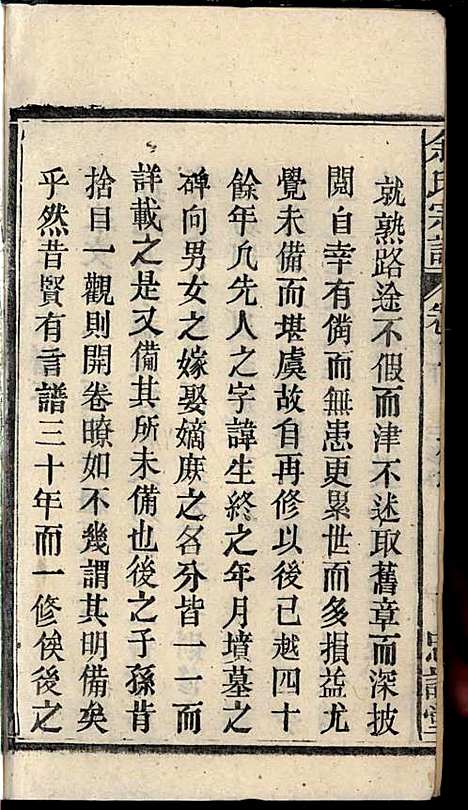 余氏宗譜
就熟路途不假而津不迷取舊章而深披
閱自幸有備而無患更累世而多損益尤
覺未備而堪虞故自再修以後已越四十
餘年凢先人之字諱生終之年月墳墓之
碑向男女之嫁娶嫡庶之名分皆一一而
詳載之是又備其所未備也後之子孫肯
捨目一觀則開卷瞭如不幾謂其明備矣
乎然昔賢有言譜三十年而一修俟後之